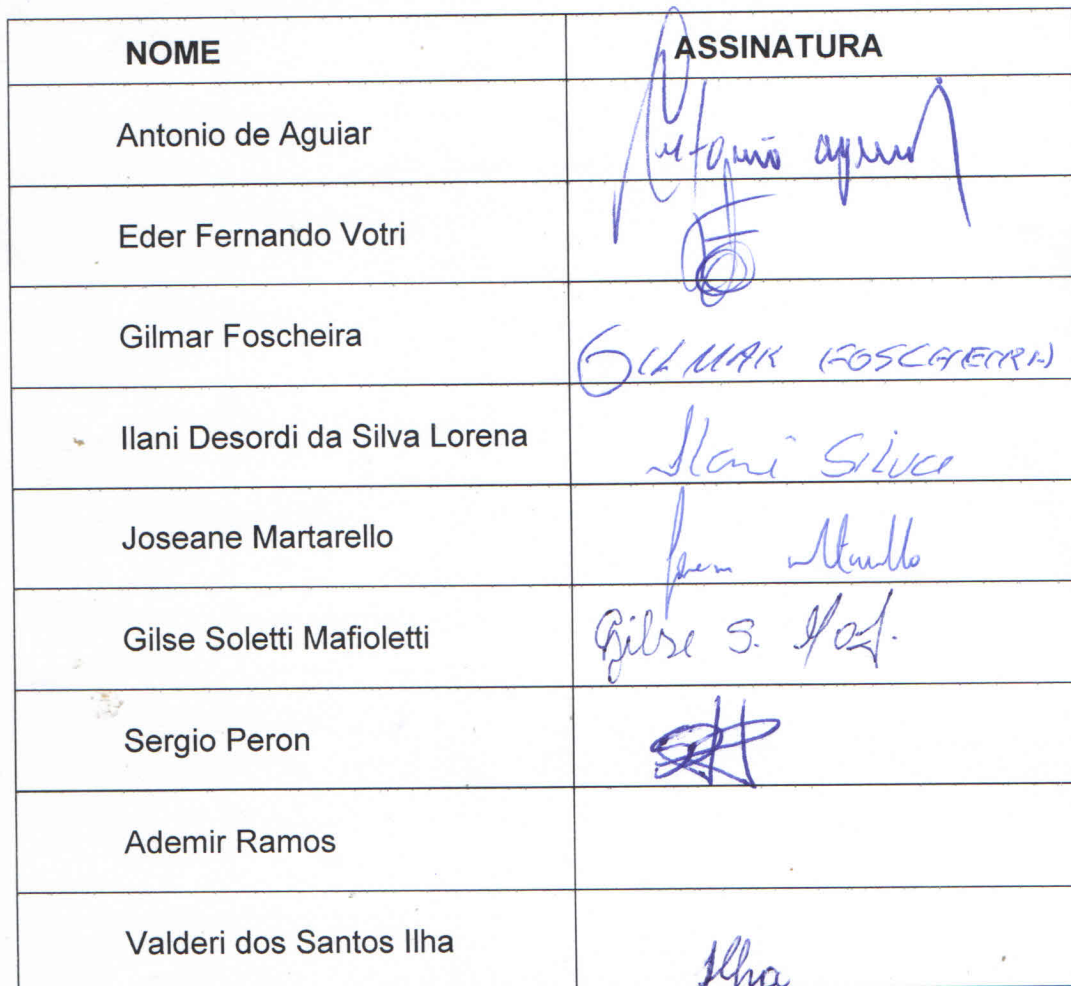 NOME ASSINATURA
Antonio de Aguiar
Eder Fernando Votri
Gilmar Foscheira GILMAR FOSCHEIRA
Ilani Desordi da Silva Lorena Ilani Silva
Joseane Martarello
Gilse Soletti Mafioletti Gilse S. Maf.
Sergio Peron
Ademir Ramos
Valderi dos Santos Ilha Ilha